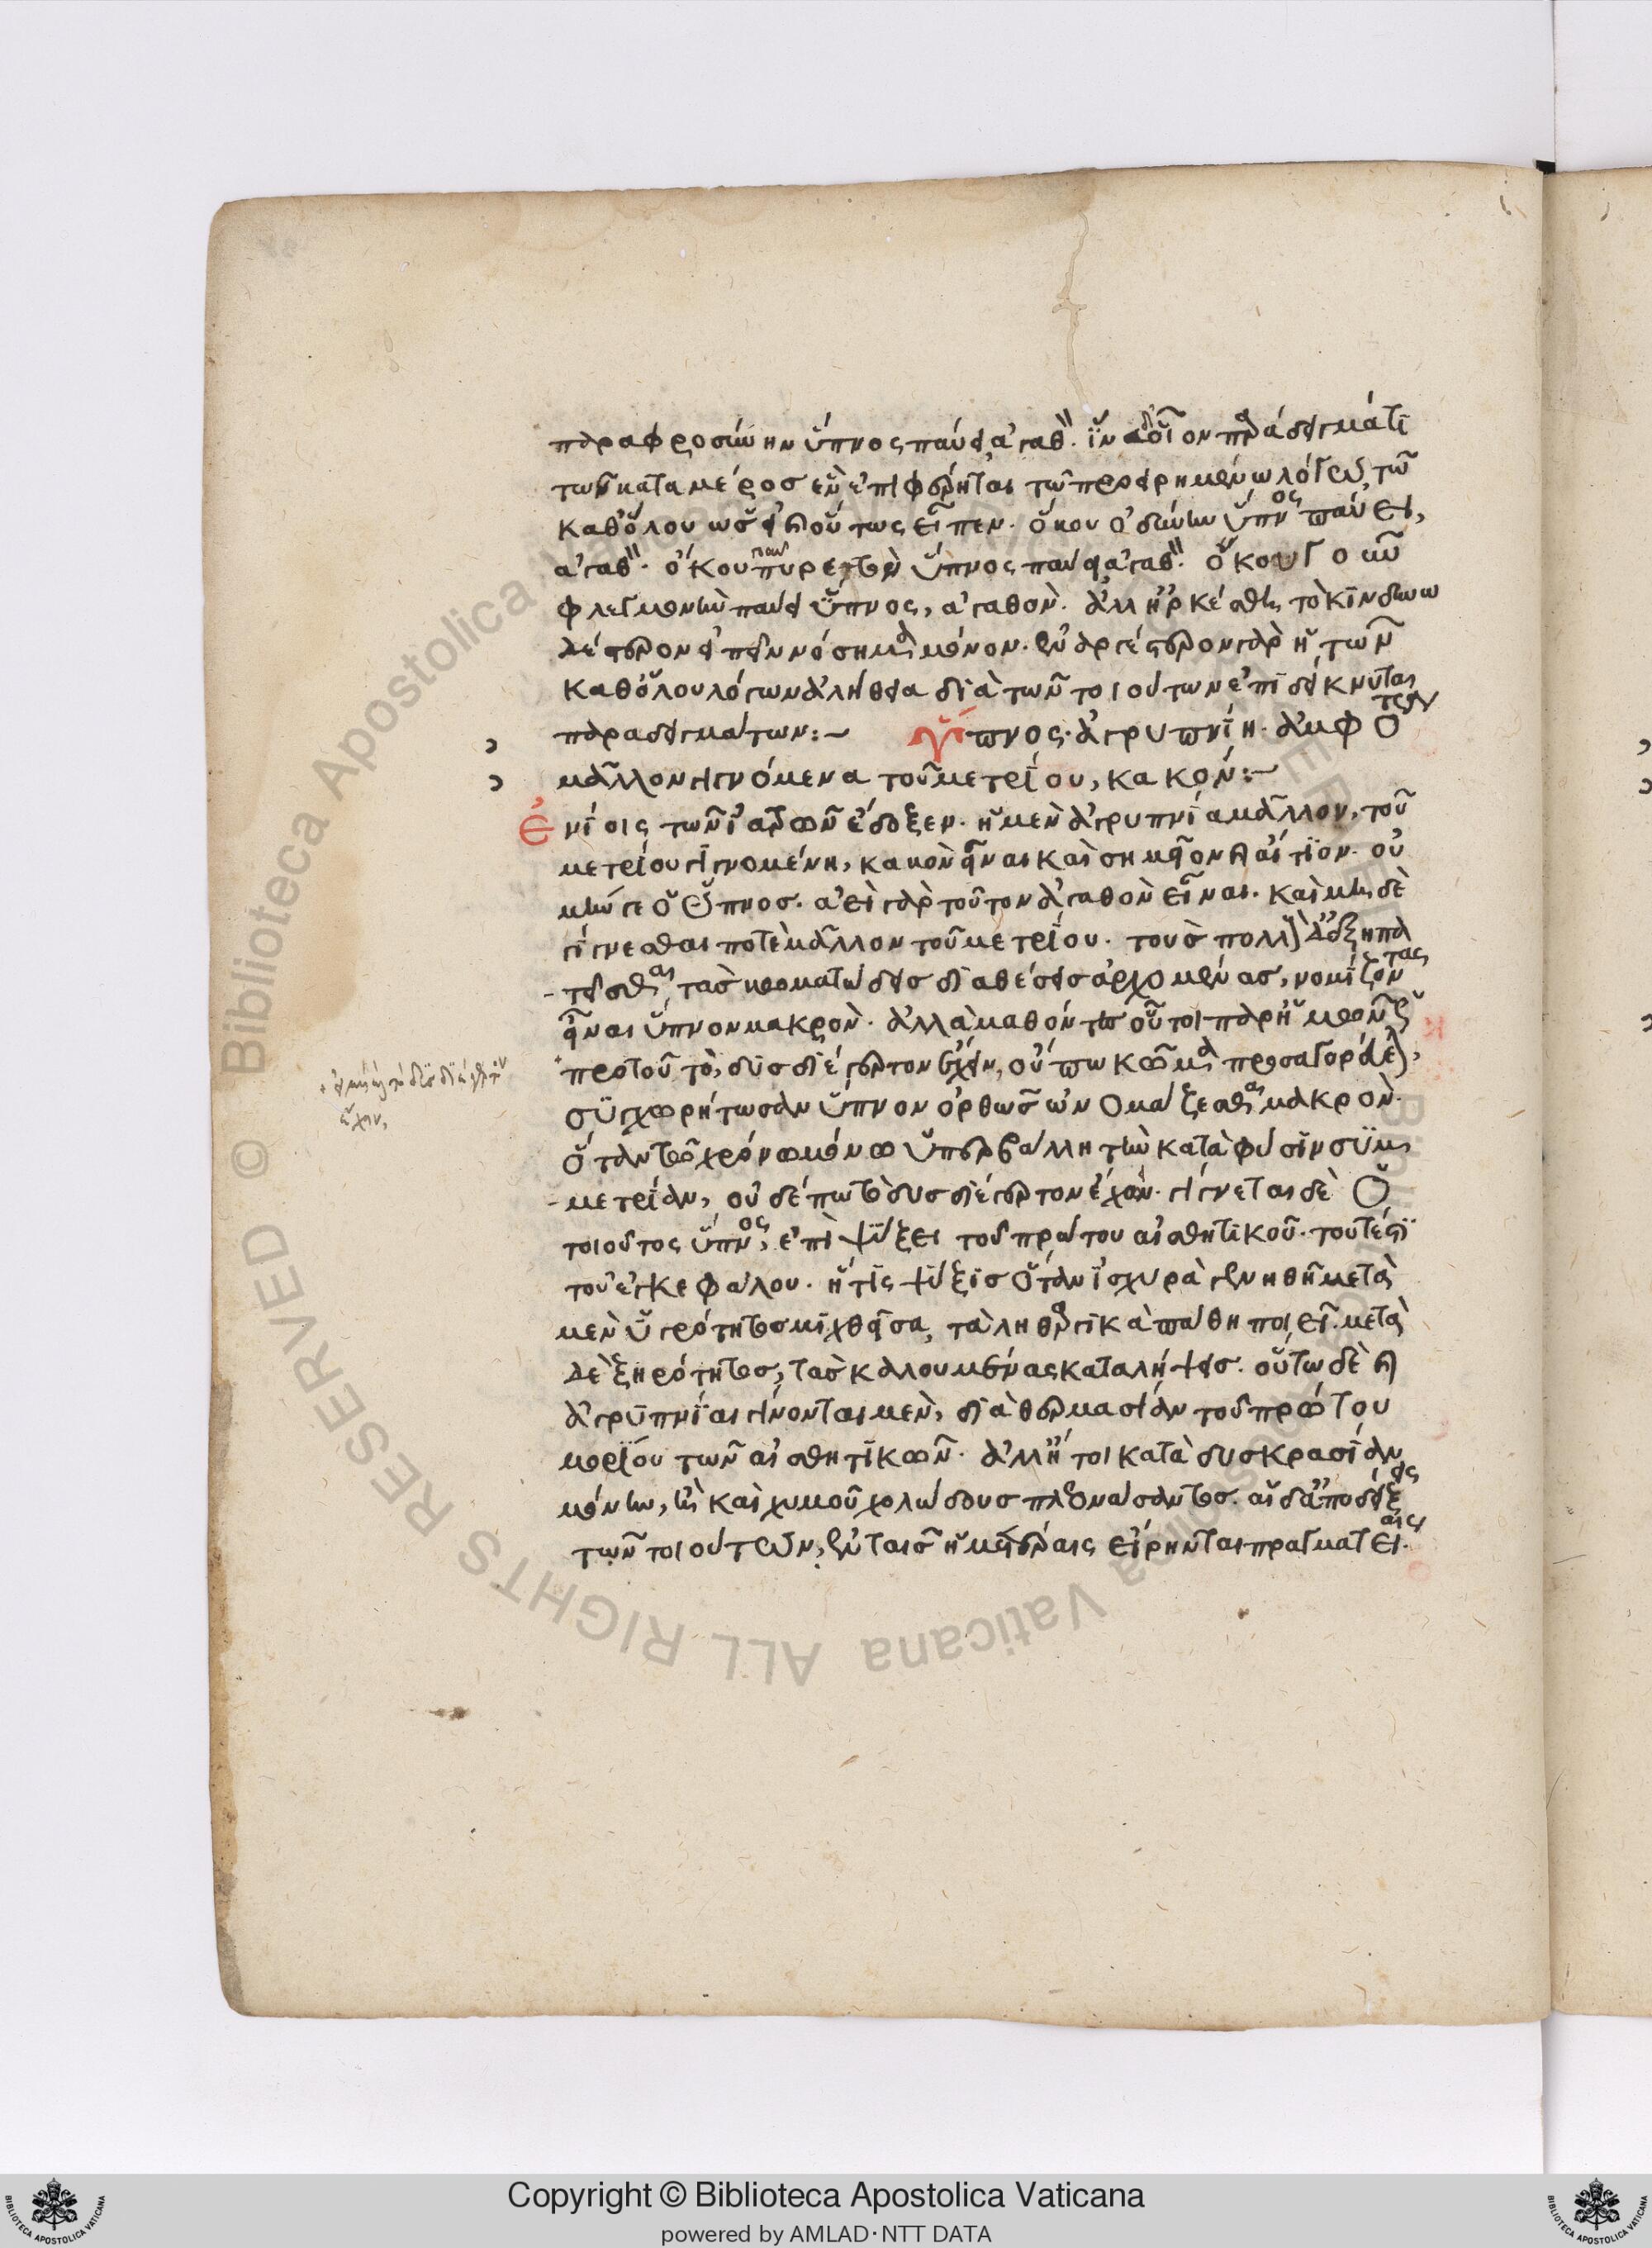 παραφροσύνην ὕπνος παύει ἀγαθ. ἵνα οἷον παραδείγματι
τῶν κατὰ μέρος ἓν ἐπιφέρηται τῷ προειρημένῳ λόγῳ τῶ
καθόλου ὡσεὶ καὶ οὕτως εἶπεν. ὅκου ὀδύνην ὕπνος παύει,
ἀγαθ. ὅκου πυρετὸν ὕπνος παύει ἀγαθ. ὅκου
φλεγμονὴν παύει ὕπνος, ἀγαθὸν. ἀλλ' ἠρκέσθη τὸ κινδυνω
δέστερον εἰπεῖν νόσημα μόνον. ἐναργέστερον γὰρ ἡ τῶν
καθόλου λόγων ἀλήθεια διὰ τῶν τοιούτων ἐπιδείκνυται
παραδειγμάτων:~ ὕπνος. ἀγρυπνίη. ἀμφότερα
μᾶλλον γινόμενα τοῦ μετρίου, κακόν:~
ἐνίοις τῶν ἰατρῶν ἔδοξεν. ἡ μὲν ἀγρυπνία μᾶλλον, τοῦ
μετρίου γινομένη, κακὸν εἶναι καὶ σημεῖον καὶ αἴτιον. οὐ
μήν γε ὁ ὕπνος. ἀεὶ γὰρ τοῦτον ἀγαθὸν εἶναι. καὶ μὴ δὲ
γίνεσθαι ποτὲ μᾶλλον τοῦ μετρίου. τοὺς πολλοὺς δ' ἐξηπα
τῆσθαι τὰς κωματώδεις διαθέσεις ἀρχομένας, νομίζοντας
εἶναι ὕπνον μακρὸν. ἀλλὰ μαθόντες οὗτοι παρ' ἡμῶν
πρὸ τοῦ τὸ, δυσδιέγερτον σχεῖν, οὔπω κῶμα προσαγορεύε,
συγχωρήτωσαν ὕπνον ὀρθῶς ὠνομάζεσθαι μακρὸν.
ὅταν τῷ χρόνῳ μόνῳ ὑπερβάλλη τὴν κατὰ φύσιν συμ
μετρίαν, οὐδέπω τὸ δυσδιέγερτον ἔχων. γίνεται δὲ ὁ
τοιοῦτος ὕπνος, ἐπὶ ψύξει τοῦ πρώτου αἰσθητικοῦ. τουτέστι
τοῦ ἐγκεφάλου. ἥτις ψύξις ὅταν ἰσχυρὰ γενηθῆ μετὰ
μὲν ὑγρότητος μιχθεῖσα, τὰ ληθαργικὰ πάθη ποιεῖ. μετὰ
δὲ ξηρότητος, τὰς καλουμένας καταλήψεις. οὕτω δὲ καὶ
ἀγρυπνίαι γίνονται μὲν, διὰ θερμασίαν τοῦ πρώτου
μορίου τῶν αἰσθητικῶν. ἀλλ' ἤτοι κατὰ δυσκρασίαν
μόνην, ἢ καὶ χυμοῦ χολώδους πλεονάσαντος. αἱ δ' ἀποδείξεις
τῶν τοιούτων, ἐν ταῖς ἡμετέραις εἴρηνται πραγματείαις.